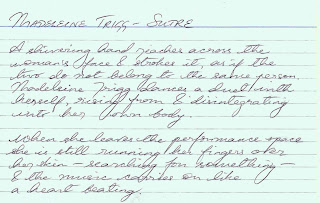 MADELEINE TRIGG - SUTRE
A shivering hand reaches across the
woman's face & strokes it, as if the
two do not belong to the same person.
Madeleine Trigg dances a duel with
herself, rising from & disintegrating
into her own body.
When she leaves the performance space
she is still running her fingers over
her skin - searching for something -
& the music carries on like
a heart beating.